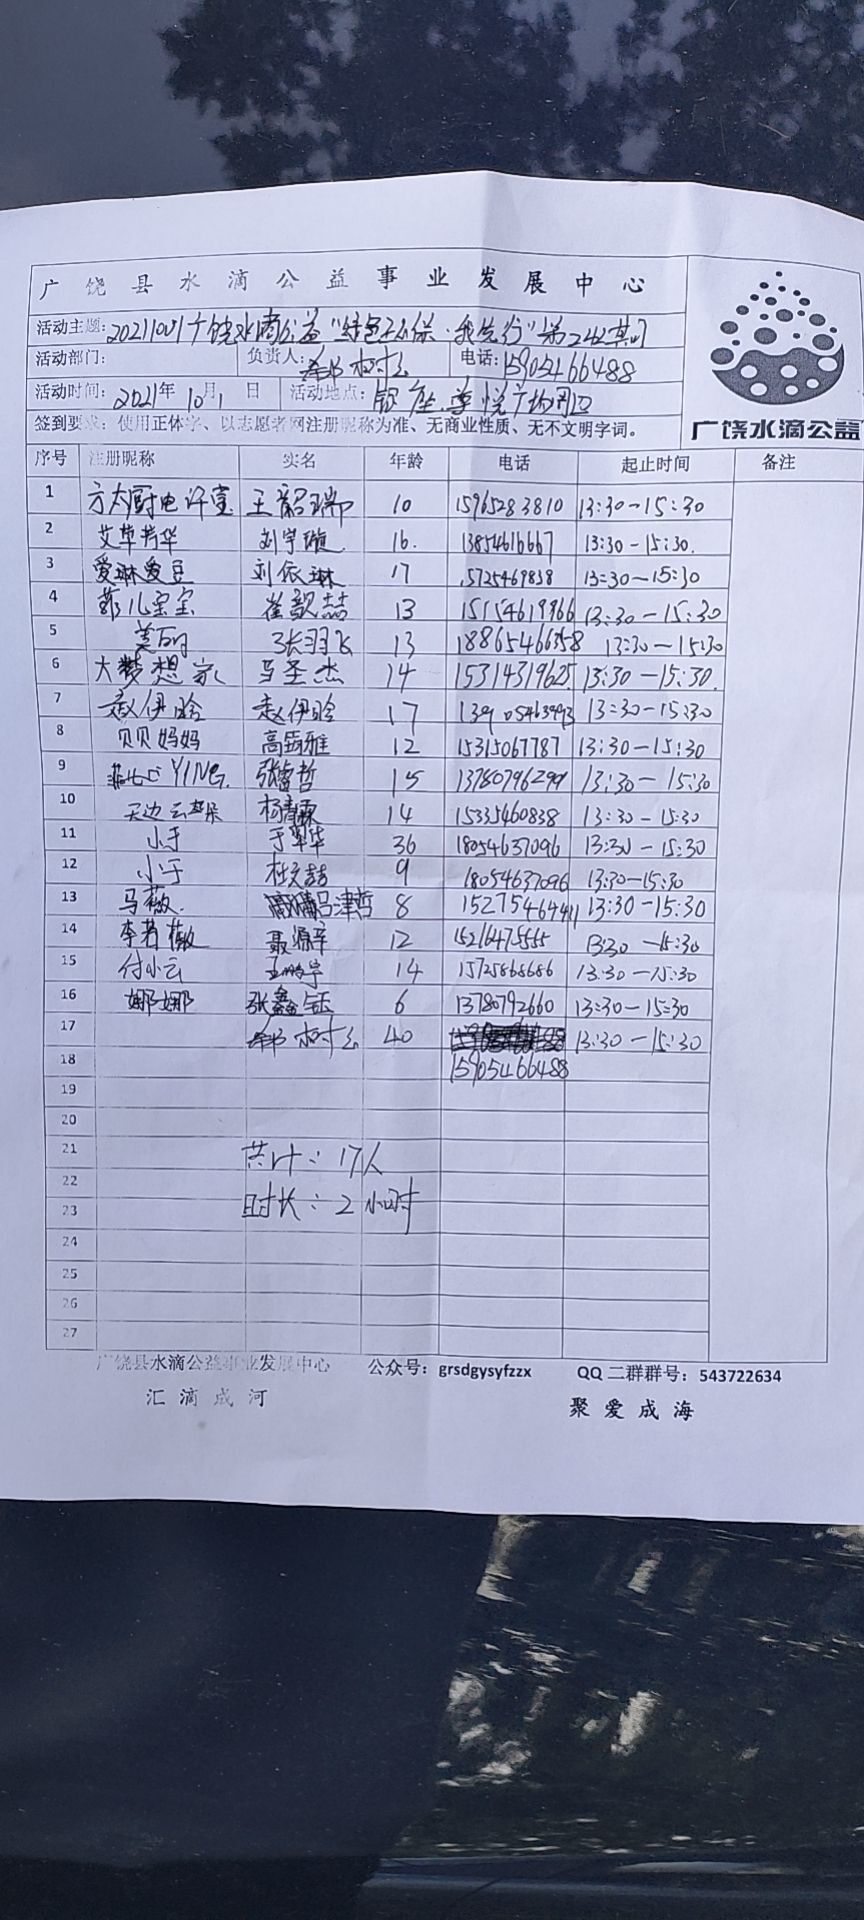 广饶县水滴公益事业发展中心
活动主题：20211001广饶水滴公益"绿色环保·我先行"第242期
活动部门： 负责人： 树 电话：15905466488
活动时间：2021年10月1日 活动地点：银座.尊悦广场周边
签到要求：使用正体字、以志愿者网注册昵称为准、无商业性质、无不文明字词。
广饶水滴公益
序号 注册昵称 实名 年龄 电话 起止时间 备注
1 方太厨电许莹 王韶瑞 10 15965283810 13:30-15:30
2 艾草芳华 刘宇璇 16. 13854616667 13:30-15:30.
3 爱琳爱豆 刘依琳 17 15725469838 13:30-15:30
4 菲儿宝宝 崔毅喆 13 15154619966 13:30-15:30
5 美的 张羽飞 13 18865466358 13:30-15:30
6 大梦想家 马圣杰 14 15314319625 13:30-15:30.
7 赵伊晗 赵伊晗 17 13:30-15:30
8 贝贝妈妈 高雅 12 15315067787 13:30-15:30
9 YING. 张睿哲 15 13780796299 13:30-15:30
10 天边云朵 杨青霖 14 15335460838 13:30-15:30
11 小于 于翠华 36 18054637096 13:30-15:30
12 小于 杜文喆 9 18054637096 13:30-15:30
13 马薇. 吕津哲 8 15275464411 13:30-15:30
14 李若薇 聂源辛 12 15216475555 1330-15:30
15 付小云 王鹏宇 14 15725868686 13:30-15:30
16 娜娜 张鑫钰 6 13780792660 13:30-15:30
17 树 40 13:30-15:30
18 15905466488
19
20
21 共计：17人
22
23 时长：2小时
24
25
26
27
广饶县水滴公益事业发展中心 公众号：grsdgysyfzzx QQ 二群群号：543722634
汇滴成河 聚爱成海